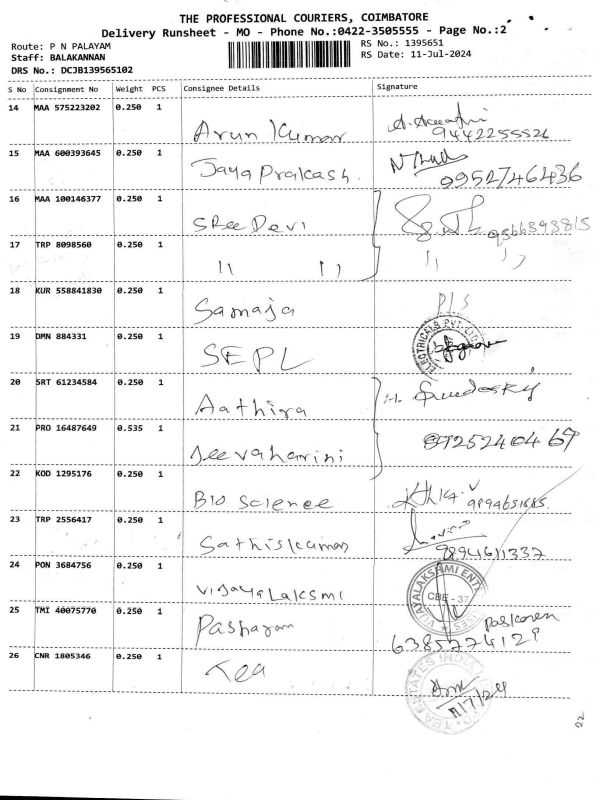 THE PROFESSIONAL COURIERS, COIMBATORE
Delivery Runsheet - MO - Phone No.:0422-3505555 - Page No.:2
Route: P N PALAYAM
Staff: BALAKANNAN
DRS No.: DCJB139565102
RS No.: 1395651
RS Date: 11-Jul-2024
S No Consignment No Weight PCS Consignee Details Signature
14 MAA 575223202 0.250 1 Arun Kumar
9442255526
15 MAA 600393645 0.250 1 Jaya Prakash
9952746436
16 MAA 100146377 0.250 1 Sree Devi 9566393815
17 TRP 8098560 0.250 1 " " " "
18 KUR 558841830 0.250 1 Samaja P/S
19 DMN 884331 0.250 1 SEPL ELECTRICALS PVT LTD
20 SRT 61234584 0.250 1 Aathira
21 PRO 16487649 0.535 1 Jeevaharini 8725240469
22 KOD 1295176 0.250 1 Bio Science 9894651685
23 TRP 2556417 0.250 1 Sathiskumar
9894611337
24 PON 3684756 0.250 1 Vijaya Laksmi VIJAYALAKSHMI CBE - 37
25 TMI 40075770 0.250 1 Paskaran Paskaren
6385774129
26 CNR 1805346 0.250 1 Tea TEA ESTATES INDIA
11/7/24
22